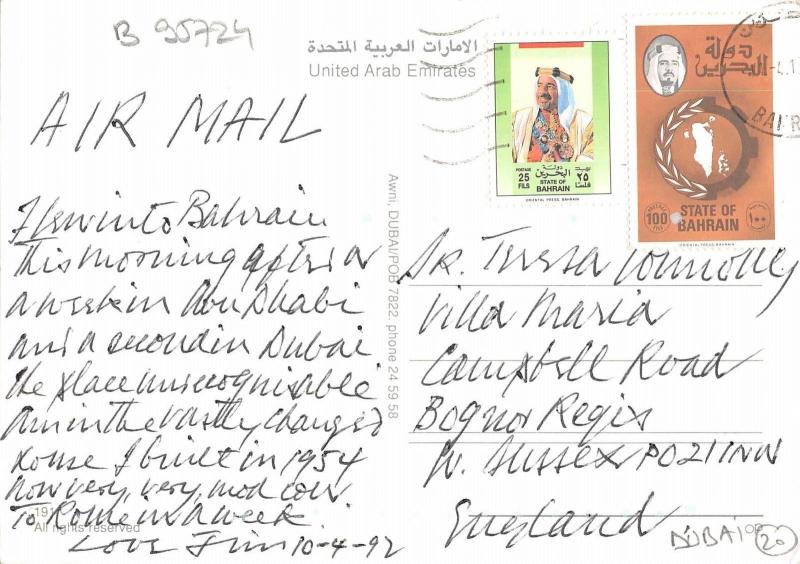 B 95724
الامارات العربية المتحدة
United Arab Emirates
AIR MAIL
Flew into Bahrain
this morning after
a week in Abu Dhabi
and a second in Dubai
the place unrecognisable
am in the vastly changed
house I built in 1954
now very, very, mod
To Rome in a week
Love Jim 10-4-92
191
All rights reserved
Awni, DUBAI/POB 7822, phone 24 59 58
دولة
البحرين
POSTAGE
25
FILS
بريد
٢٥
فلسا
STATE OF
BAHRAIN
ORIENTAL PRESS, BAHRAIN
دولة
البحرين
POSTAGE
100
FILS
١٠٠
STATE OF
BAHRAIN
ORIENTAL PRESS, BAHRAIN
Sr. Teresa Connolly
Villa Maria
Campbell Road
Bognor Regis
W. Sussex PO21 1NN
England
DUBAI
20